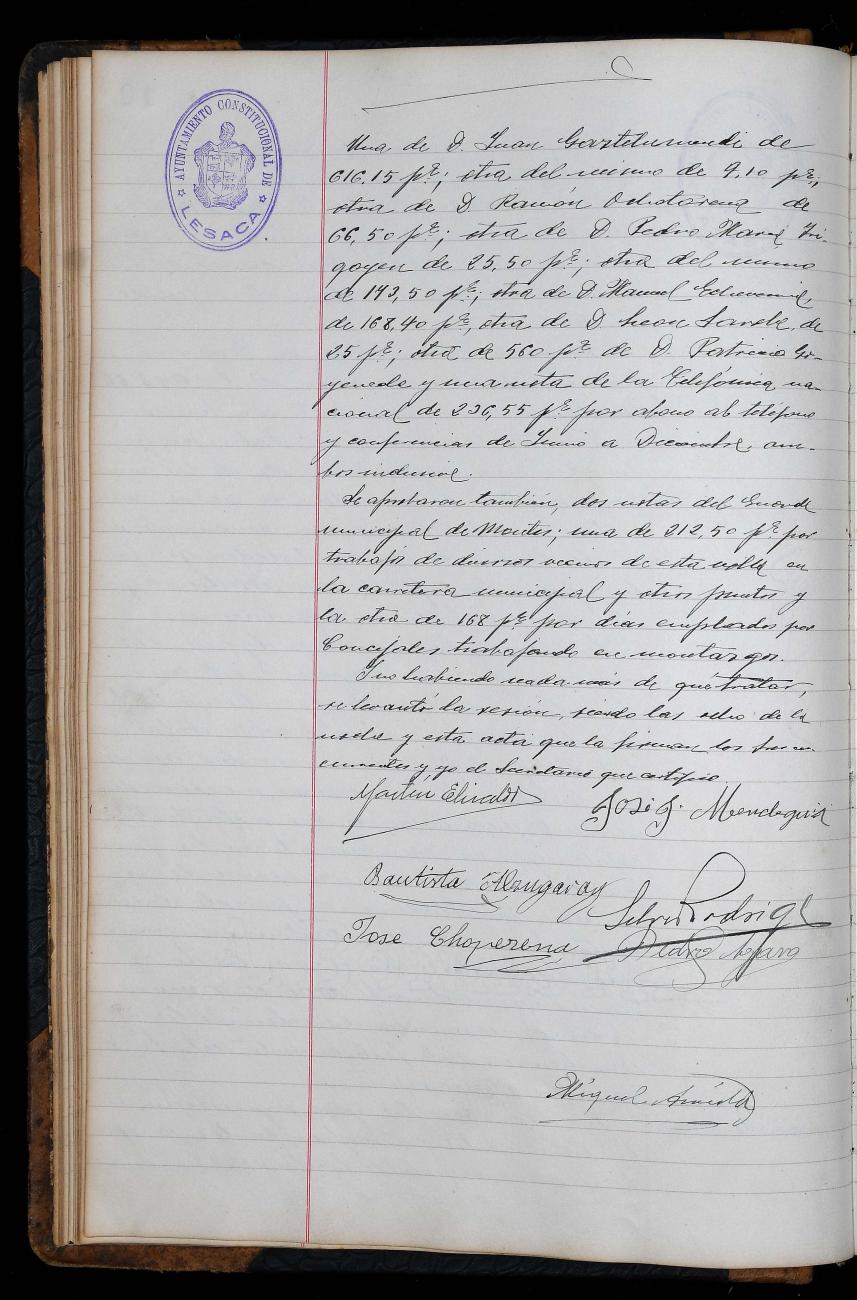 AYUNTAMIENTO CONSTITUCIONAL DE
LESACA
Una de D. Juan Gaztelumendi de
616,15 pts; otra del mismo de 9,10 pts;
otra de D. Ramón Ochotorena de
66,50 pts; otra de D. Pedro María Iri-
goyen de 25,50 pts; otra del mismo
de 143,50 pts; otra de D. Manuel Echeverria,
de 168,40 pts, otra de D. León de
25 pts; otra de 560 pts de D. Patricio Go-
yeneche y una nota de la Telefónica na-
cional de 236,55 pts por abono al teléfono
y conferencias de Junio a Diciembre, am-
bos inclusive.
Se aprobaron también, dos notas del Guarda
municipal de Montes; una de 212,50 pts por
trabajos de diversos vecinos de esta villa en
la carretera municipal y otros puntos y
la otra de 168 pts por días empleados por
Concejales trabajando en montazgos.
Y no habiendo nada más de qué tratar,
se levantó la sesión, siendo las ocho de la
noche y esta acta que la firman los Sres con-
currentes y yo el Secretario que certifico.
Martín Elizalde
José J. Mendeguia
Bautista Alzugaray
Rodrig
Jose Choperena
Pedro
Miguel